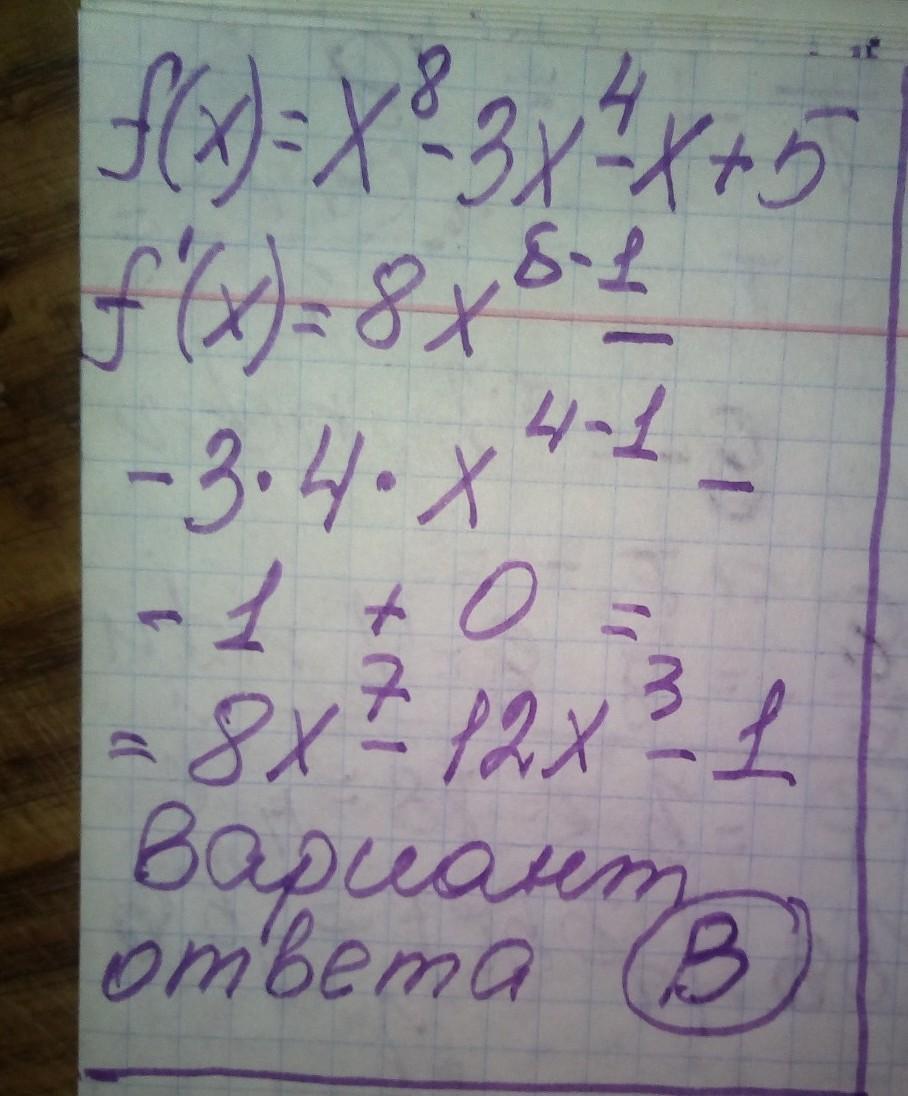 f(x)=x⁸-3x⁴-x+5
f'(x)=8x⁸⁻¹ -
-3·4·x⁴⁻¹ -
-1 + 0 =
=8x⁷-12x³-1
Вариант
ответа В